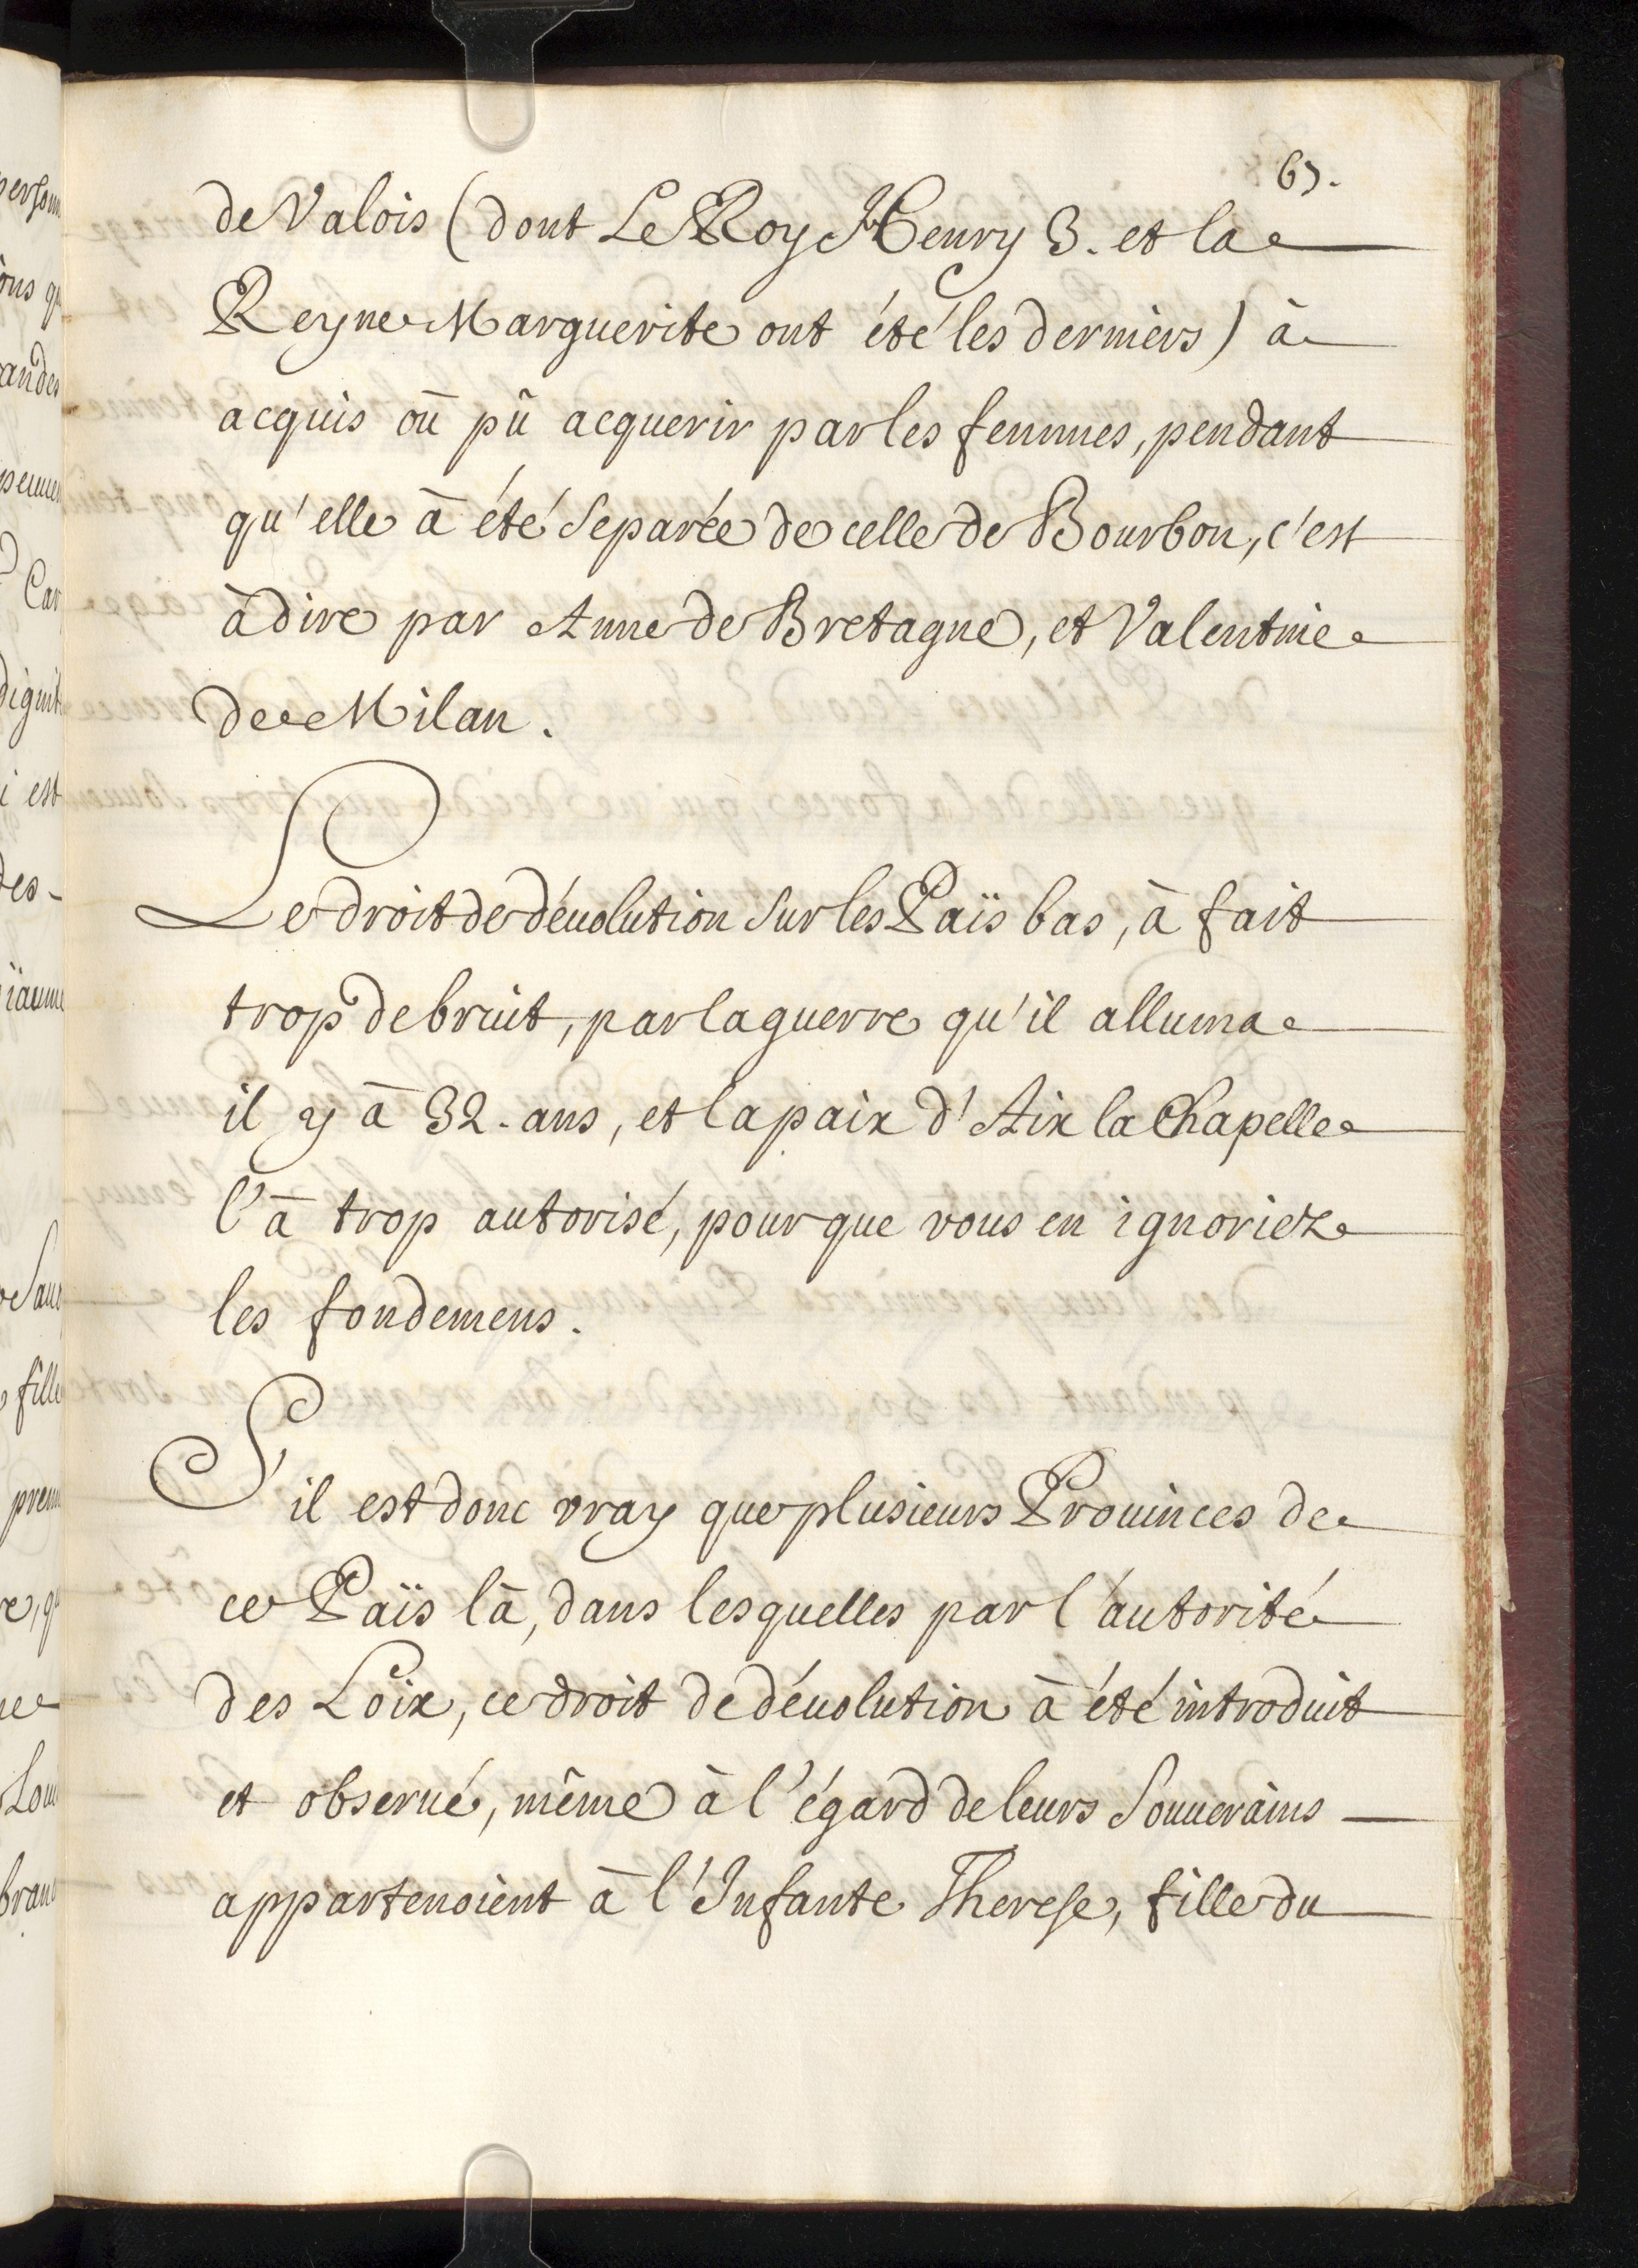 67.
de Valois (dont Le Roy Henry 3. et la
Reyne Marguerite ont été les derniers) à
acquis oū pū acquerir par les femmes, pendant
qu'elle à été separée de celle de Bourbon, c'est
à dire par Anne de Bretagne, et Valentine
de Milan.
Le droit de déuolution sur les Païs bas, à fait
trop de bruit, par la guerre qu'il alluma
il y ā 32. ans, et la paix d'Aix la Chapelle
l'ā trop autorisé, pour que vous en ignoriez
les fondemens.
S'il est donc vray que plusieurs Prouinces de
ce Païs là, dans lesquelles par l'autorité
des Loix, ce droit de déuolution à été introduit
et obserué, même à l'égard de leurs Souuerains
appartenoient à l'Infante Therese, fille du